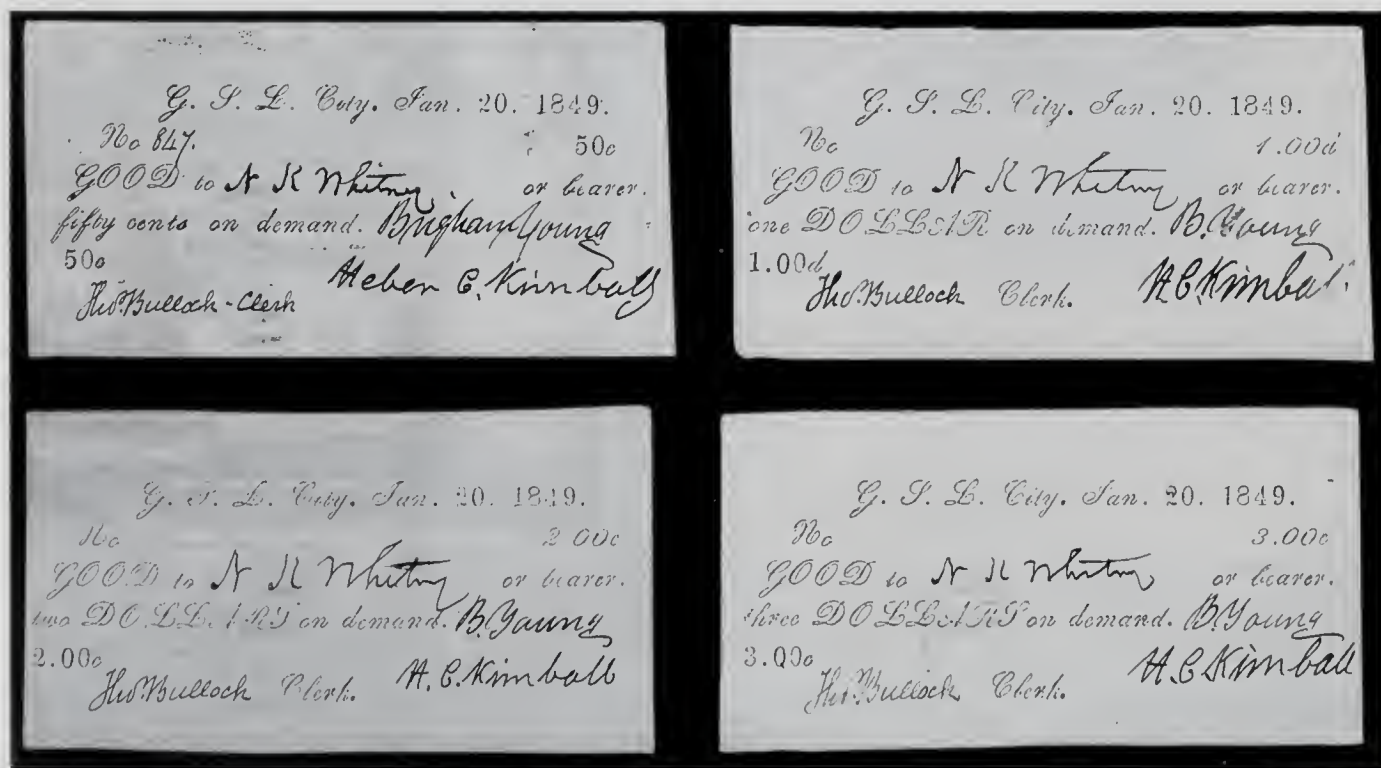 G. S. L. City. Jan. 20. 1849.
No 847. 50c
GOOD to N K Whitney, or bearer.
fifty cents on demand. Brigham Young
50c
Heber C. Kimball
Thos. Bullock - Clerk
G. S. L. City. Jan. 20. 1849.
No 1.00d
GOOD to N K Whitney or bearer.
one DOLLAR on demand. B. Young
1.00d
Thos. Bullock Clerk. H. C. Kimball
G. S. L. City. Jan. 20. 1849.
No 2 00c
GOOD to N K Whitney or bearer.
two DOLLARS on demand. B. Young
2.00c
Thos. Bullock Clerk. H. C. Kimball
G. S. L. City. Jan. 20. 1849.
No 3.00c
GOOD to N K Whitney or bearer.
three DOLLARS on demand. B. Young
3.00c
Thos. Bullock Clerk. H. C. Kimball